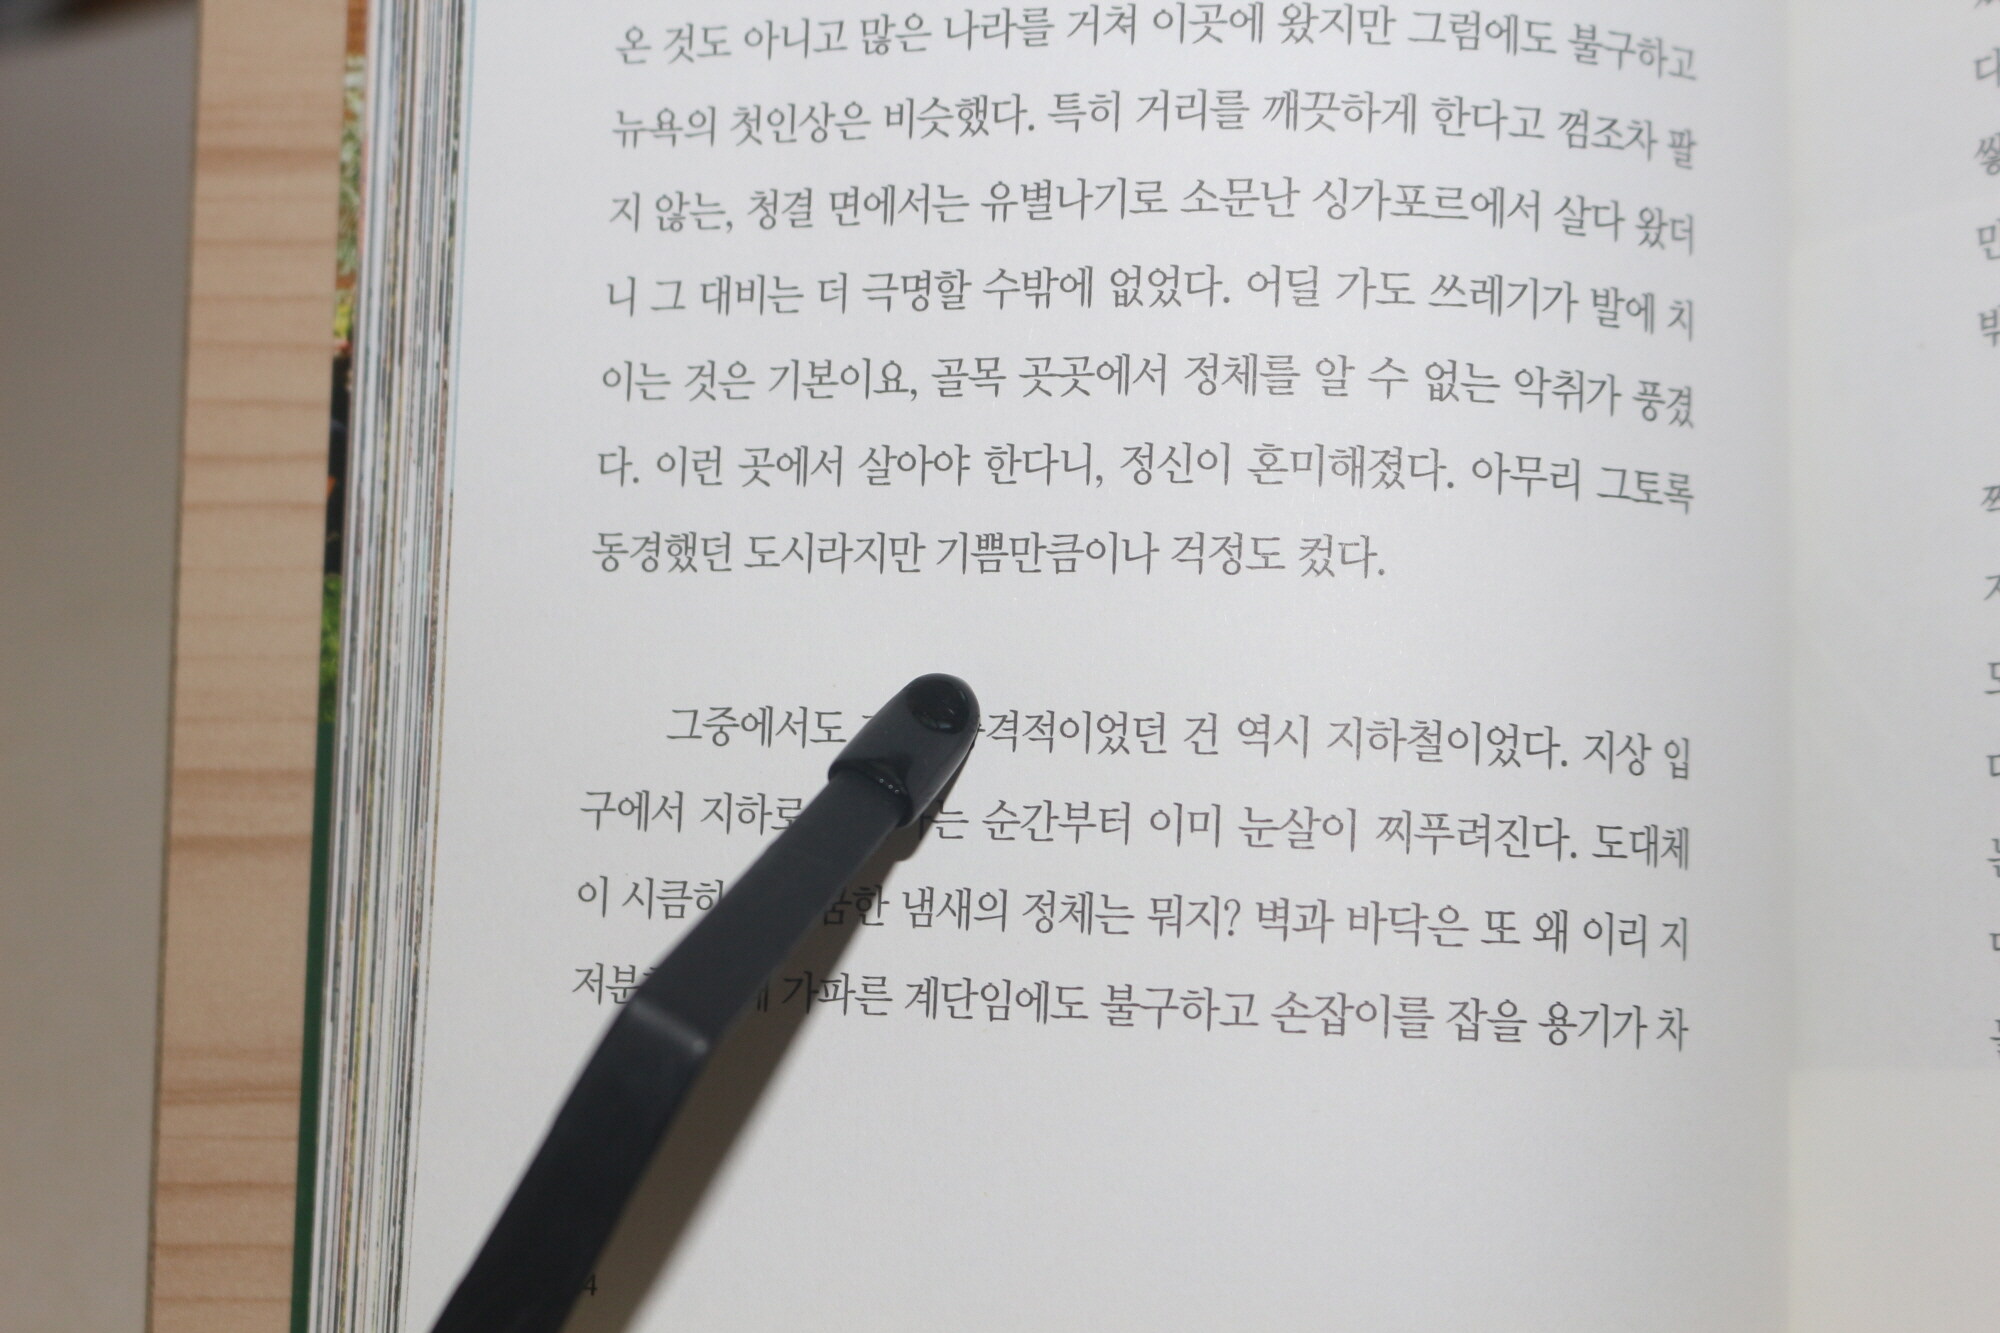 온 것도 아니고 많은 나라를 거쳐 이곳에 왔지만 그럼에도 불구하고
뉴욕의 첫인상은 비슷했다. 특히 거리를 깨끗하게 한다고 껌조차 팔
지 않는, 청결 면에서는 유별나기로 소문난 싱가포르에서 살다 왔더
니 그 대비는 더 극명할 수밖에 없었다. 어딜 가도 쓰레기가 발에 치
이는 것은 기본이요, 골목 곳곳에서 정체를 알 수 없는 악취가 풍겼
다. 이런 곳에서 살아야 한다니, 정신이 혼미해졌다. 아무리 그토록
동경했던 도시라지만 기쁨만큼이나 걱정도 컸다.
그중에서도 건 역시 지하철이었다. 지상 입
구에서 순간부터 이미 눈살이 찌푸려진다. 도대체
이 냄새의 정체는 뭐지? 벽과 바닥은 또 왜 이리 지
가파른 계단임에도 불구하고 손잡이를 잡을 용기가 차